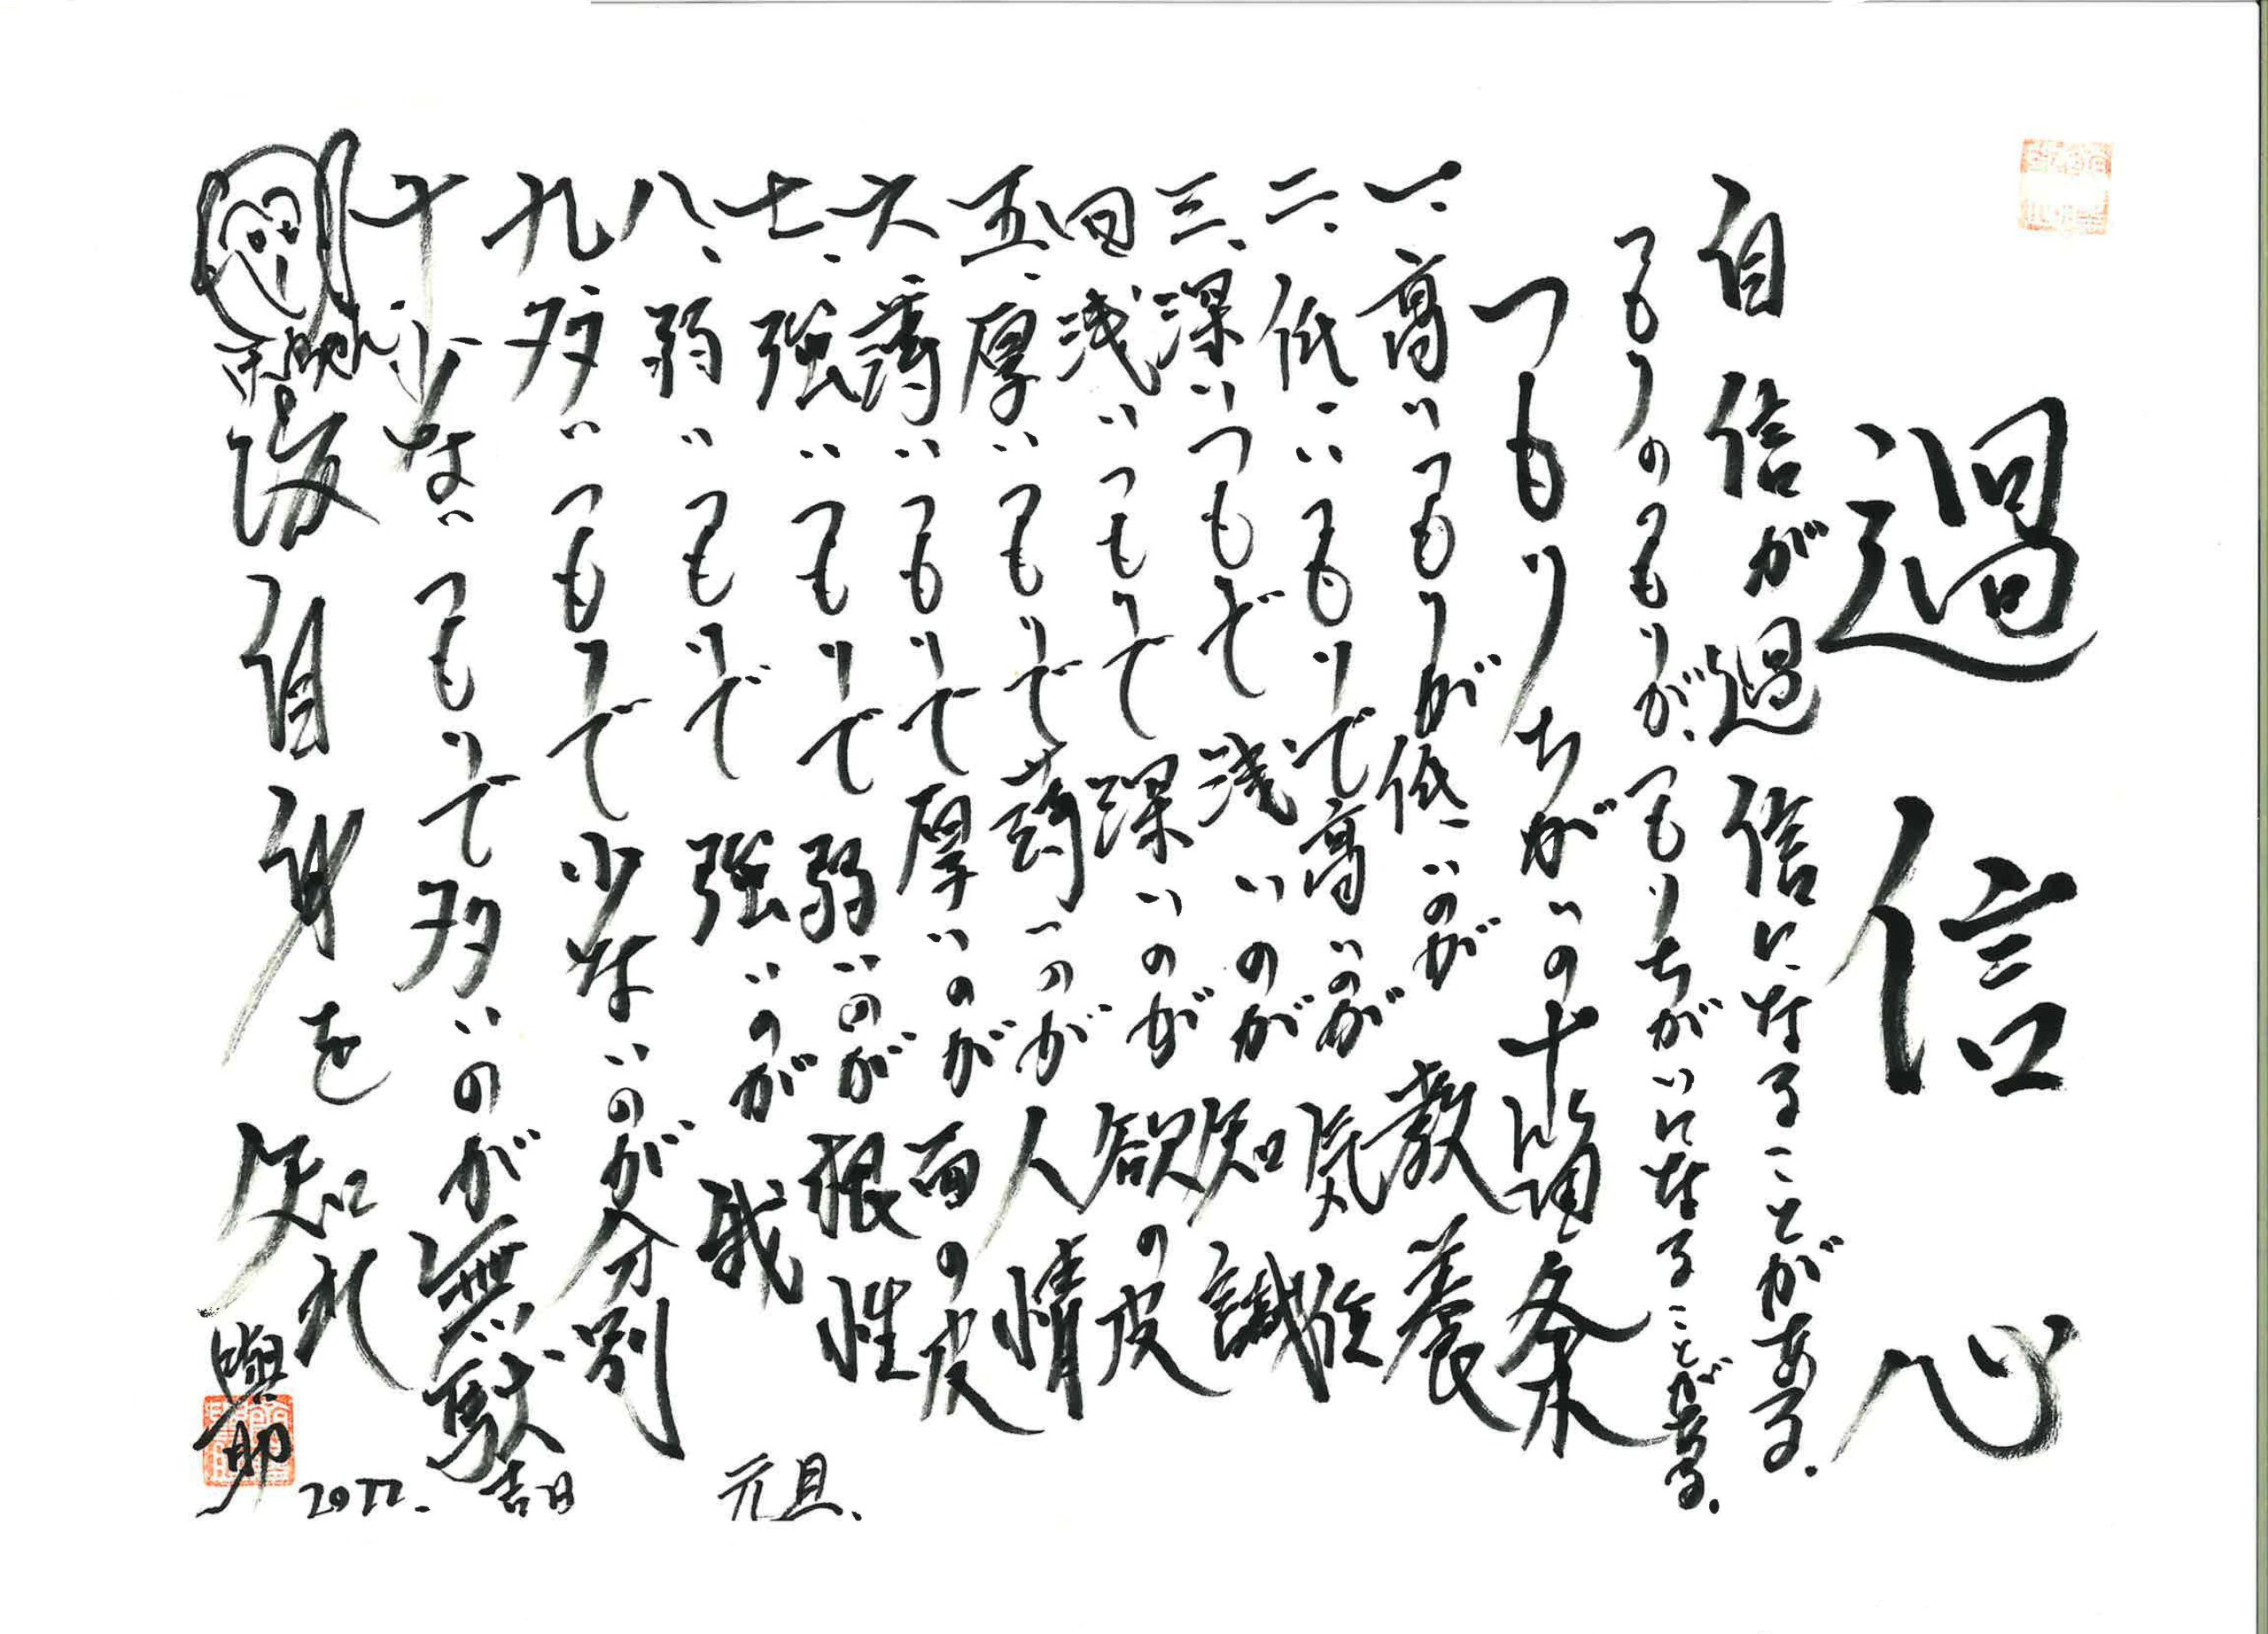 過信心
自信が過信になることがある。
つもりのつもりが、つもりちがいになることがある。
つもりちがいの十箇条
一、高いつもりが低いのが教養
二、低いつもりで高いのが気位
三、深いつもで浅いのが知識
四浅いつもりで深いのが欲の皮
五、厚いつもりで薄いのが人情
六薄いつもりで厚いのが面の皮
七、強いつもりで弱いのが根性
八、弱いつもりで強いのが我
九多いつもりで少ないのが分別
十、少ないつもりで多いのが無駄
自分自身を知れ
2022.
吉日
元旦、